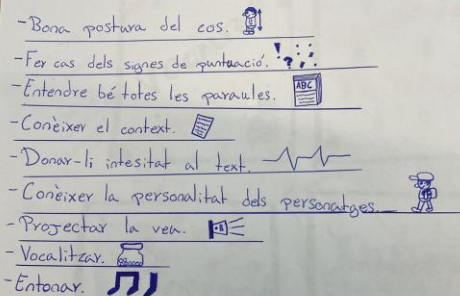 - Bona postura del cos.
- Fer cas dels signes de puntuació. ! ? , : . ;
- Entendre bé totes les paraules. ABC
- Conèixer el context.
- Donar-li intesitat al text.
- Conèixer la personalitat dels personatges.
- Projectar la veu.
- Vocalitzar.
- Entonar.